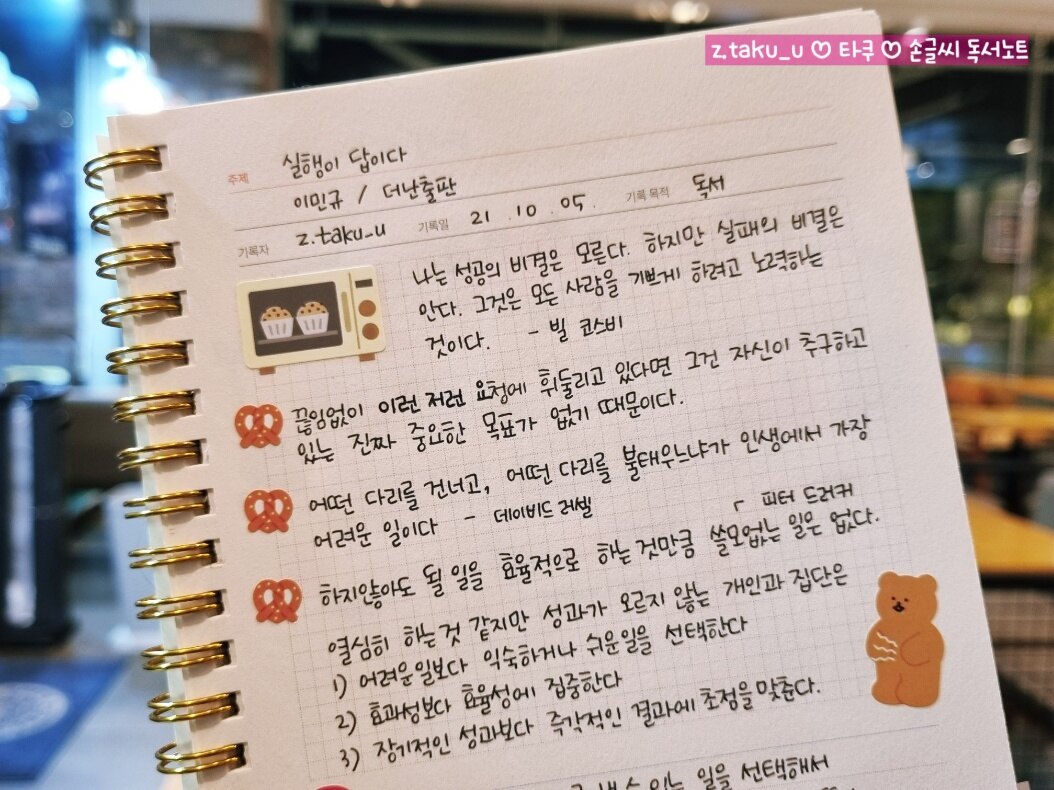 z.taku_u ♡ 타쿠 ♡ 손글씨 독서노트
주제 실행이 답이다
이민규 / 더난출판
기록자 z.taku_u 기록일 21.10.05. 기록 목적 독서
나는 성공의 비결은 모른다. 하지만 실패의 비결은
안다. 그것은 모든 사람을 기쁘게 하려고 노력하는
것이다. - 빌 코스비
끊임없이 이런 저런 요청에 휘둘리고 있다면 그건 자신이 추구하고
있는 진짜 중요한 목표가 없기 때문이다.
어떤 다리를 건너고, 어떤 다리를 불태우느냐가 인생에서 가장
어려운 일이다 - 데이비드 러셀
┌ 피터 드러커
하지않아도 될 일을 효율적으로 하는 것만큼 쓸모없는 일은 없다.
열심히 하는것 같지만 성과가 오르지 않는 개인과 집단은
1) 어려운일보다 익숙하거나 쉬운일을 선택한다
2) 효과성보다 효율성에 집중한다
3) 장기적인 성과보다 즉각적인 결과에 초점을 맞춘다.
있는 일을 선택해서